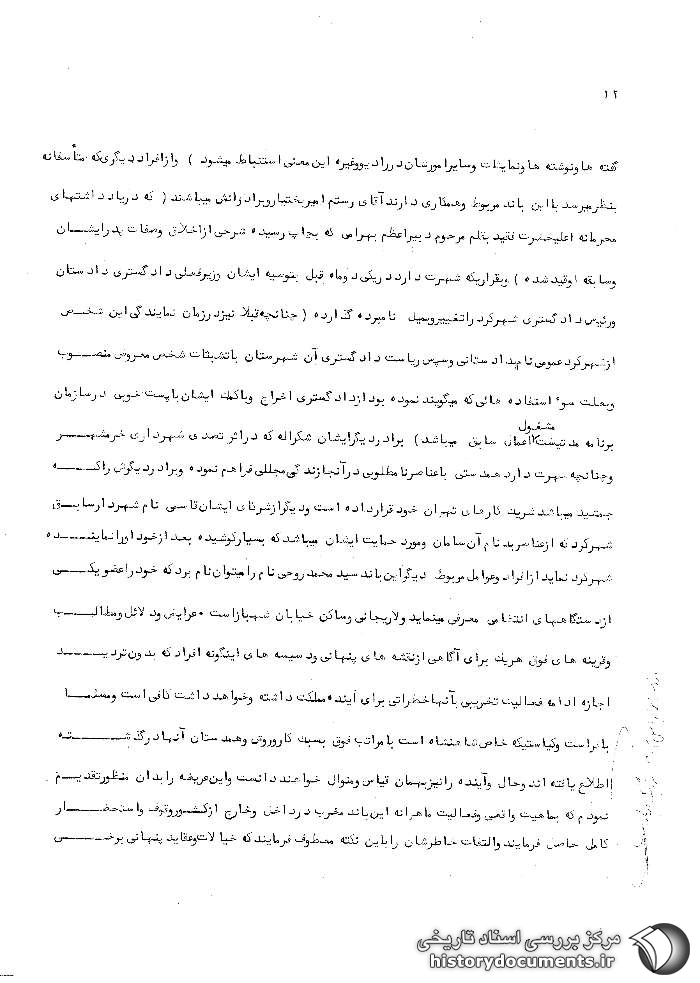 ۱۲
گفته ها ونوشته ها ونمایشات وسایر امورشان در رادیو وغیره این معنی استنباط میشود ) و از افراد دیگری که متأسفانه
بنظر میرسد با این باند مربوط وهمکاری دارند آقای رستم امیربختیار وبرادرانش میباشند ( که در یادداشتهای
محرمانه اعلیحضرت فقید بقلم مرحوم دبیراعظم بهرامی که بچاپ رسیده شرحی از اخلاق وصفات پدر ایشان
وسابقه او قید شده ) وبقراریکه شهرت دارد در یکی دو ماه قبل بتوصیه ایشان وزیر فعلی دادگستری دادستان
ورئیس دادگستری شهرکرد را تغییر وبمیل نامبرده گذارده ( چنانچه قبلا نیز در زمان نمایندگی این شخص
از شهرکرد عمومی نام بدادستانی وسپس ریاست دادگستری آن شهرستان با تشبثات شخص معروض منصوب
وبعلت سوء استفاده هائی که میگویند نموده بود از دادگستری اخراج وباکمک ایشان با پست خوبی در سازمان
برنامه مشغول اعمال سابق میباشد ) برادر دیگر ایشان شکراله که در اثر تصدی شهرداری خرمشهر
وچنانچه شهرت دارد همدستی با عناصر نامطلوبی در آنجا زندگی مجللی فراهم نموده وبرادر دیگرش را که
جمشید میباشد شریک کارهای تهران خود قرار داده است ودیگر از شرکای ایشان قاسمی نام شهردار سابق
شهرکرد که از عناصر بدنام آن سامان ومورد حمایت ایشان میباشد که بسیار کوشیده بعد از خود او را نماینده
شهرکرد نماید از افراد وعوامل مربوط دیگر این باند سید محمد روحی نام را میتوان نام برد که خود را عضو یکی
از دستگاههای انتظامی معرفی مینماید ولاریجانی وساکن خیابان شهباز است ۰ عرایض ودلائل ومطالب
وقرینه های فوق هریک برای آگاهی از نقشه های پنهانی ودسیسه های اینگونه افراد که بدون تردید
اجازه ادامه فعالیت تخریبی بآنها خطراتی برای آینده مملکت داشته وخواهد داشت کافی است ومسلما
با فراست وکیاستیکه خاص شاهنشاه است با مراتب فوق بسبک کار وروش وهمدستان آنها در گذشته
اطلاع یافته اند وحال وآینده را نیز بهمان قیاس ومنوال خواهند دانست واین عریضه را بدان منظور تقدیم
نمودم که بماهیت واقعی وفعالیت ماهرانه این باند مخرب در داخل وخارج از کشور وقوف واستحضار
کامل حاصل فرمایند والتفات خاطرشان را باین نکته معطوف فرمایند که خیالات وعقاید پنهانی برخی
مرکز بررسی اسناد تاریخی
historydocuments.ir